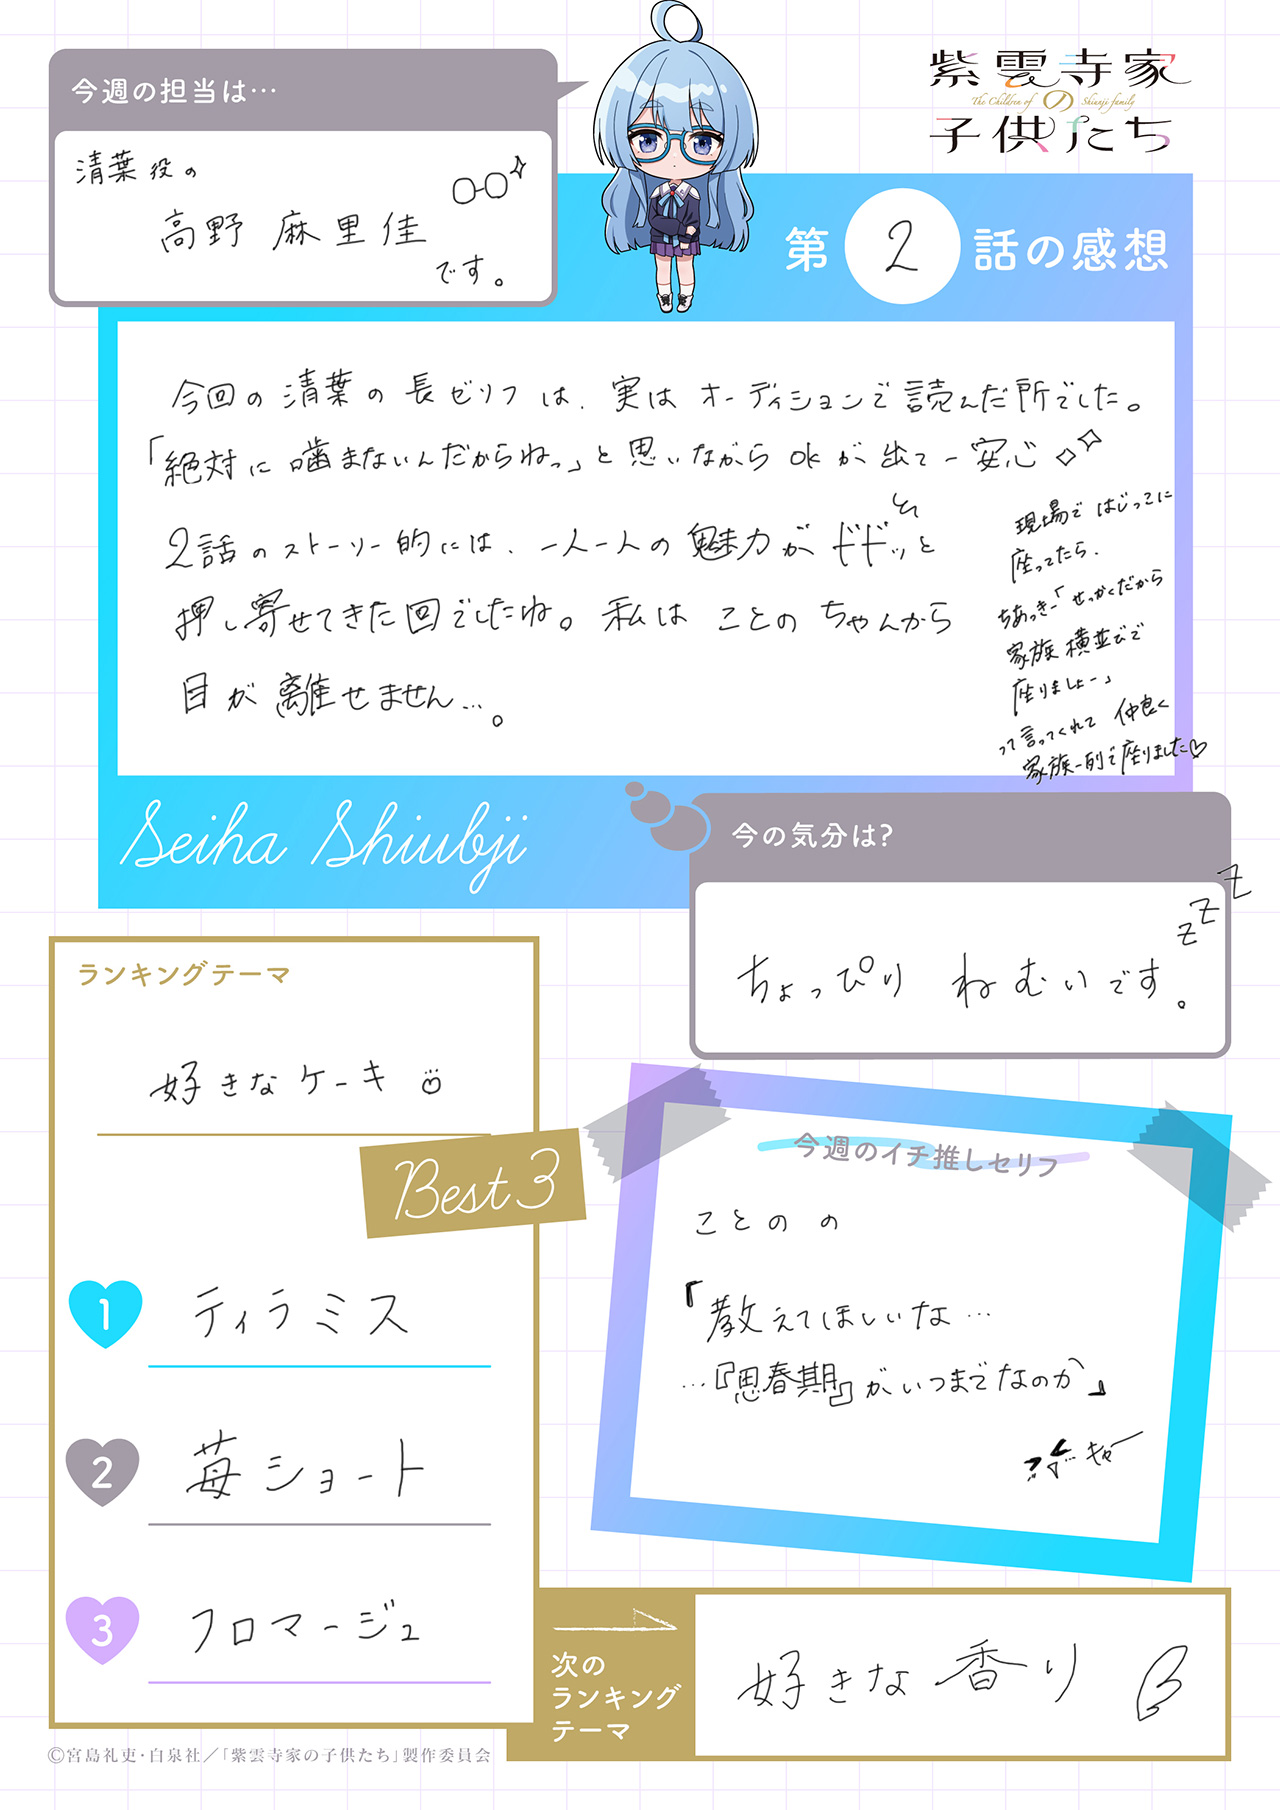 今週の担当は…
清葉役の
高野麻里佳
です。
紫雲寺家
The Children of の Shiunji family
子供たち
第2話の感想
今回の清葉の長ゼリフは、実はオーディションで読んだ所でした。
「絶対に噛まないんだからねっ」と思いながらokが出て一安心
2話のストーリー的には、一人一人の魅力がドドドッと
押し寄せてきた回でしたね。私はことのちゃんから
目が離せません…。
現場ではじっこに
座ってたら、
ちあっきー「せっかくだから
家族横並びで
座りましょー」
って言ってくれて仲良く
家族一列で座りました♡
Seiha Shiubji
今の気分は?
ちょっぴりねむいです。
zzz
ランキングテーマ
好きなケーキ
Best3
1 ティラミス
2 苺ショート
3 フロマージュ
今週のイチ推しセリフ
ことのの
『教えてほしいな…
…『思春期』がいつまでなのか』
次の
ランキング
テーマ
好きな香り
©宮島礼吏・白泉社／「紫雲寺家の子供たち」製作委員会